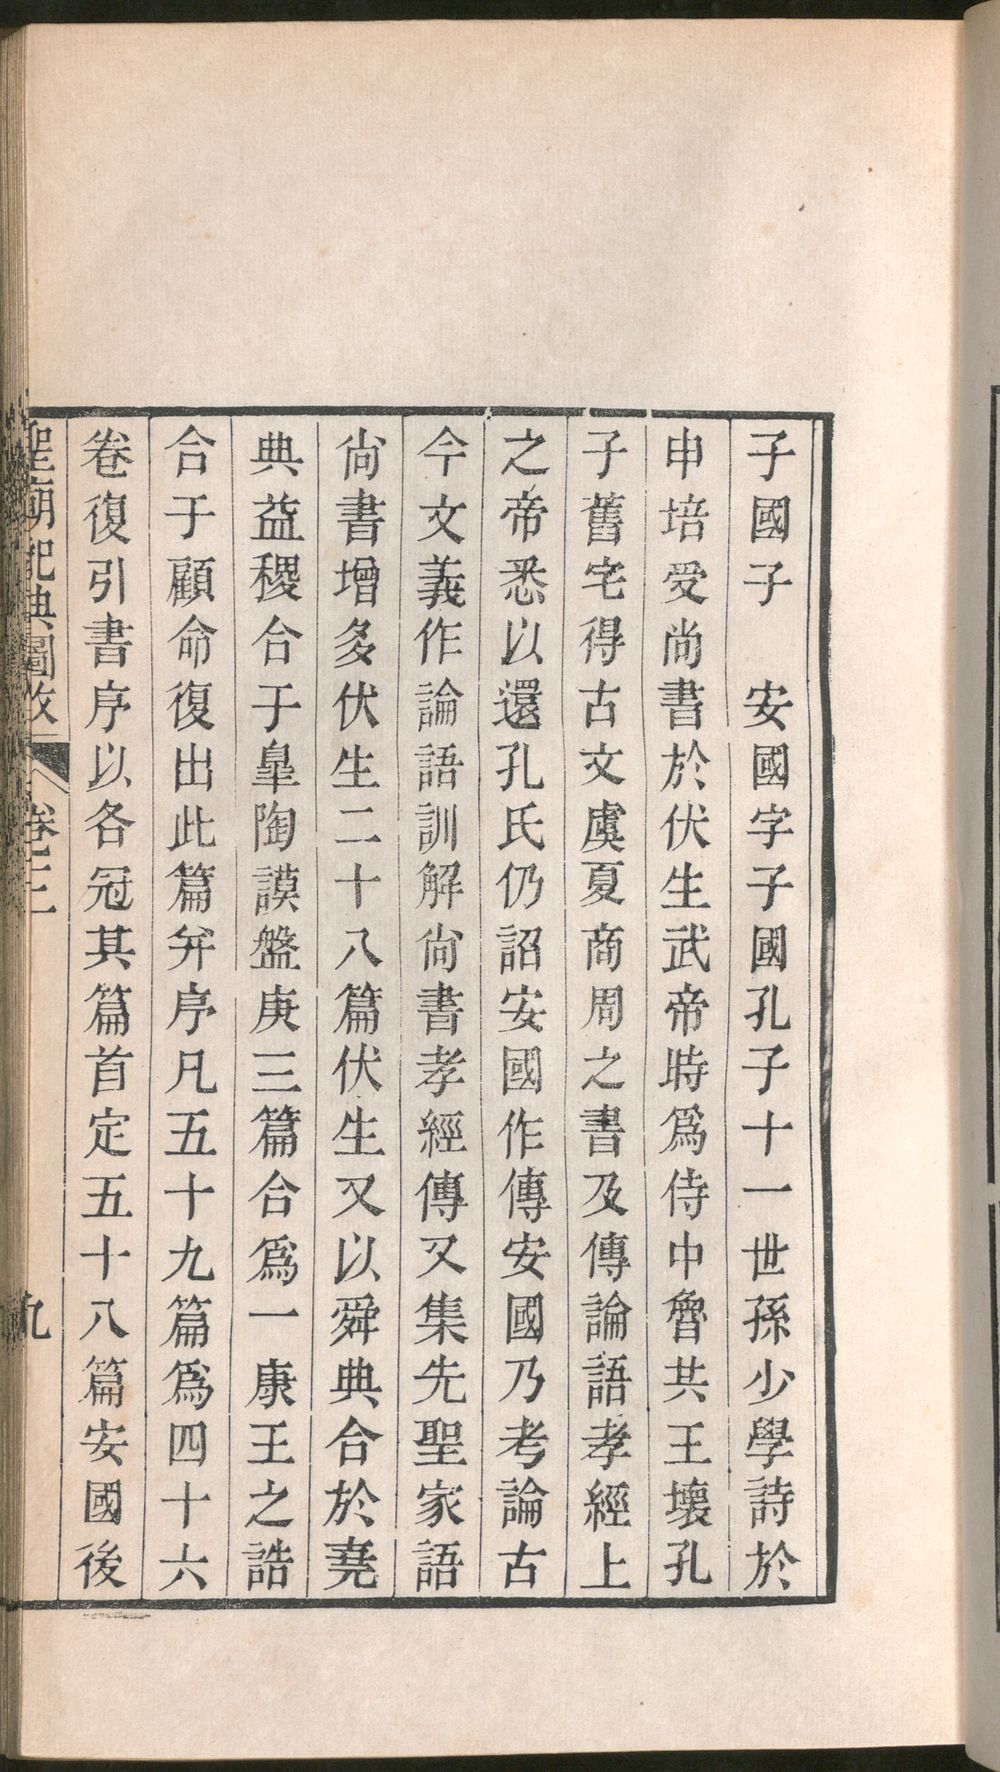 子國子　安國字子國孔子十一世孫少學詩於
申培受尚書於伏生武帝時爲侍中魯共王壞孔
子舊宅得古文虞夏商周之書及傳論語孝經上
之帝悉以還孔氏仍詔安國作傳安國乃考論古
今文義作論語訓解尚書孝經傳又集先聖家語
尚書增多伏生二十八篇伏生又以舜典合於堯
典益稷合于臯陶謨盤庚三篇合爲一康王之誥
合于顧命復出此篇弁序凡五十九篇爲四十六
卷復引書序以各冠其篇首定五十八篇安國後
聖廟祀典圖攷　卷三　九